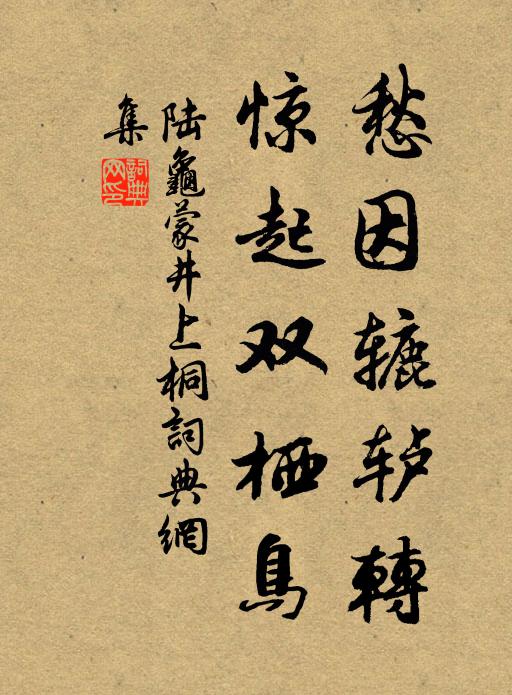 愁因辘轳轉
惊起双栖鳥
陆龜蒙井上桐詞典網
集
詞典网印